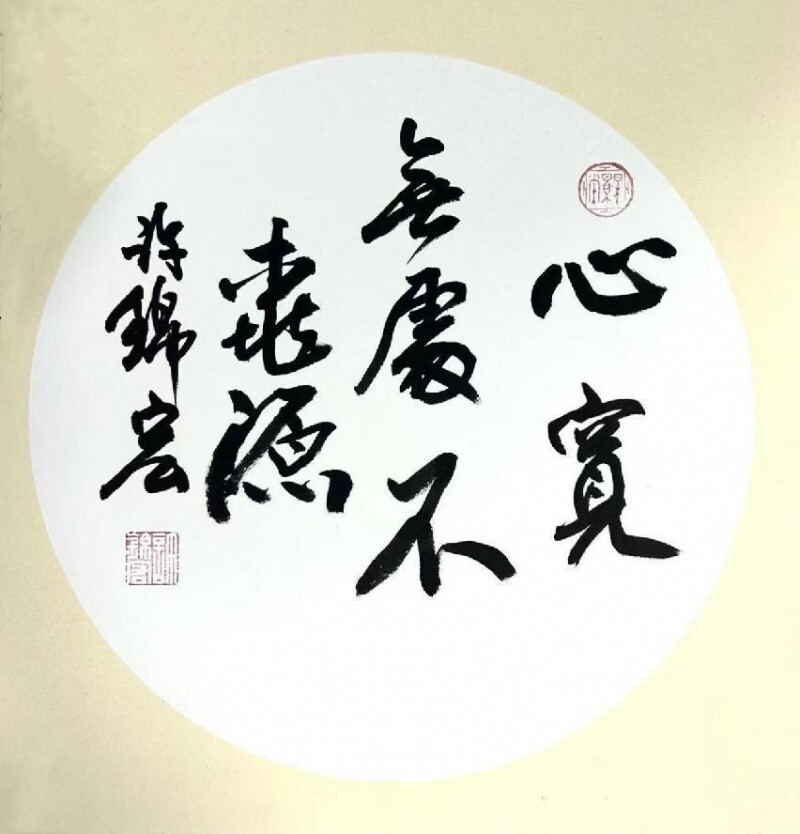 心寬
無處不
桃源
許錦宏